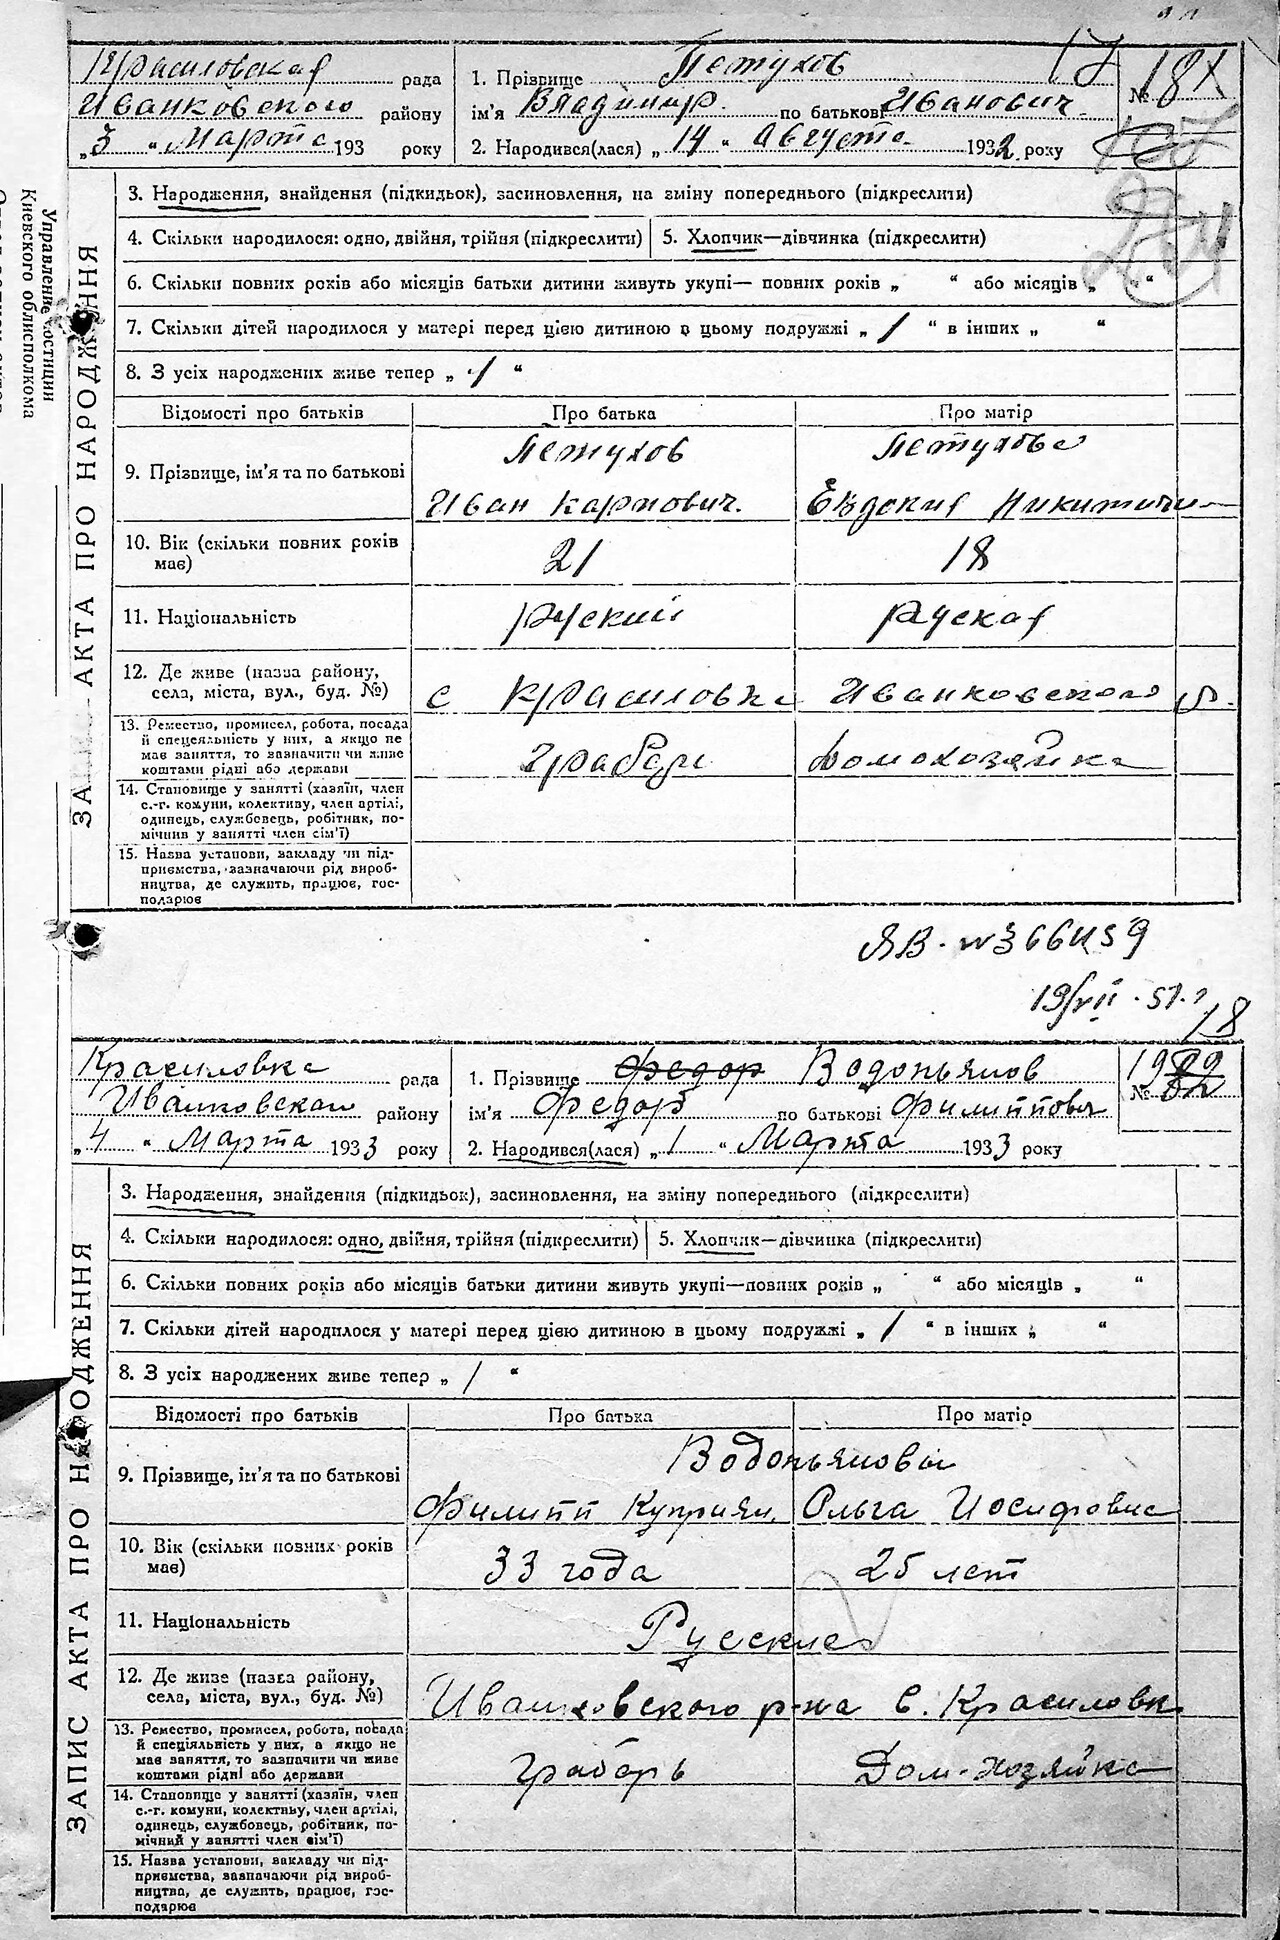 Управление юстиции
Киевского облисполкома
ЗАПИС АКТА ПРО НАРОДЖЕННЯ
Красиловская рада
Иванковского району
„3 “ Марта 193 року
1. Прізвище Петухов
ім'я Владимир по батькові Иванович
2. Народився(лася) „ 14 “ Августа 1932 року
17
№ 181
3. Народження, знайдення (підкидьок), засиновлення, на зміну попереднього (підкреслити)
4. Скільки народилося: одно, двійня, трійня (підкреслити)
5. Хлопчик—дівчинка (підкреслити)
6. Скільки повних років або місяців батьки дитини живуть укупі— повних років „ “ або місяців „ “
7. Скільки дітей народилося у матері перед цією дитиною в цьому подружжі „ 1 “ в інших „ “
8. З усіх народжених живе тепер „ 1 “
Відомості про батьків Про батька Про матір
9. Прізвище, ім'я та по батькові
Петухов Петухова
Иван Карпович. Евдокия Никитичн
10. Вік (скільки повних років
має)
21 18
11. Національність руский руская
12. Де живе (назва району,
села, міста, вул., буд. №)
с Красиловка Иванковского р.
13. Ремество, промисел, робота, посада
й спецеяльність у них, а якщо не
має заняття, то зазначити чи живе
коштами рідні або держави
Грабарь домохозяйка
14. Становище у занятті (хазяїн, член
с.-г. комуни, колективу, член артілі,
одинець, службовець, робітник, по-
мічнив у занятті член сім'ї)
15. Назва установи, закладу чи під-
приємства, зазначаючи рід вироб-
ництва, де служить, працює, гос-
подарює
ЯВ. № 366459
19/VII . 51.
18
ЗАПИС АКТА ПРО НАРОДЖЕННЯ
Красиловка рада
Иванковская району
„4 “ Марта 1933 року
1. Прізвище Федор Водопьянов
ім'я Федор по батькові Филиппович
2. Народився(лася) „ 1 “ Марта 1933 року
№
3. Народження, знайдення (підкидьок), засиновлення, на зміну попереднього (підкреслити)
4. Скільки народилося: одно, двійня, трійня (підкреслити)
5. Хлопчик—дівчинка (підкреслити)
6. Скільки повних років або місяців батьки дитини живуть укупі—повних років „ “ або місяців „ “
7. Скільки дітей народилося у матері перед цією дитиною в цьому подружжі „ 1 “ в інших „ “
8. З усіх народжених живе тепер „ 1 “
Відомості про батьків Про батька Про матір
9. Прізвище, ім'я та по батькові
Водопьяновы
Филипп Куприян. Ольга Иосифовна
10. Вік (скільки повних років
має)
33 года 25 лет
11. Національність Русские
12. Де живе (назва району,
села, міста, вул., буд. №)
Иванковского р-на с. Красиловк
13. Ремество, промисел, робота, посада
й спеціяльність у них, а якщо не
має заняття, то зазначити чи живе
коштами рідні або держави
грабарь Дом-хозяйка
14. Становище у занятті (хазяїн, член
с.-г. комуни, колективу, член артілі,
одинець, службовець, робітник, по-
мічний у занятті член сім'ї)
15. Назва установи, закладу чи під-
приємства, зазначаючи рід вироб-
ництва, де служить, працює, гос-
подарює